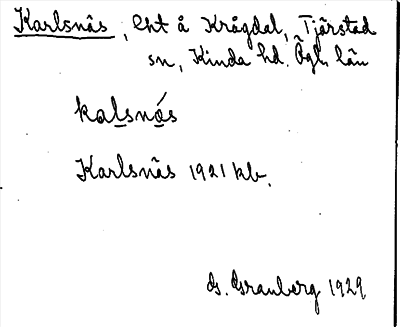 Karlsnäs, lht å Krågdal, Tjärstad
sn, Kinda hd. Ögl. län
kalsnäs
Karlsnäs 1921 kb.
G. Granberg 1929